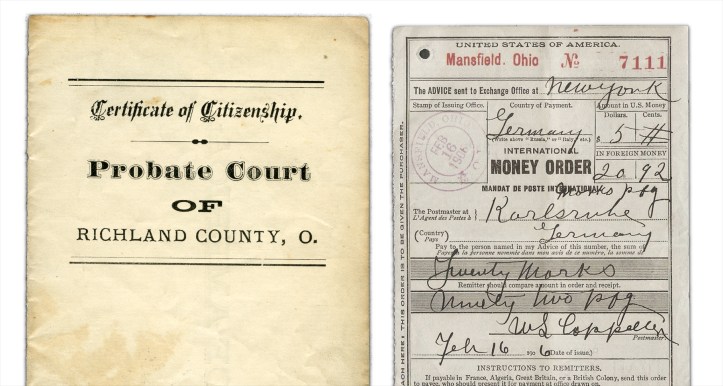 Certificate of Citizenship.
Probate Court
OF
RICHLAND COUNTY, O.
UNITED STATES OF AMERICA.
Mansfield, Ohio No 7111
The ADVICE sent to Exchange Office at New York
Stamp of Issuing Office. Country of Payment. Amount in U.S. Money
Dollars. Cents.
Germany $5
(Write above "Russia," or "Italy," etc.)
INTERNATIONAL IN FOREIGN MONEY
MONEY ORDER 20 92
MANDAT DE POSTE INTERNATIONAL
Marks pfg
The Postmaster at
L'Agent des Postes à
Karlsruhe
(Country)
Pays
Germany
Pay to the person named in my Advice of this number, the sum of
Payez la personne nommée dans mon avis de ce numéro, la somme de
Twenty Marks
Remitter should compare amount in order and receipt.
Ninety two pfg
Postmaster
Feb 16 6 (Date of issue.)
INSTRUCTIONS TO REMITTERS.
If payable in France, Algeria, Great Britain, or a British Colony, send this order
to payee, who should present it for payment at office drawn on.
FEB
16
THIS ORDER IS TO BE GIVEN THE PURCHASER.